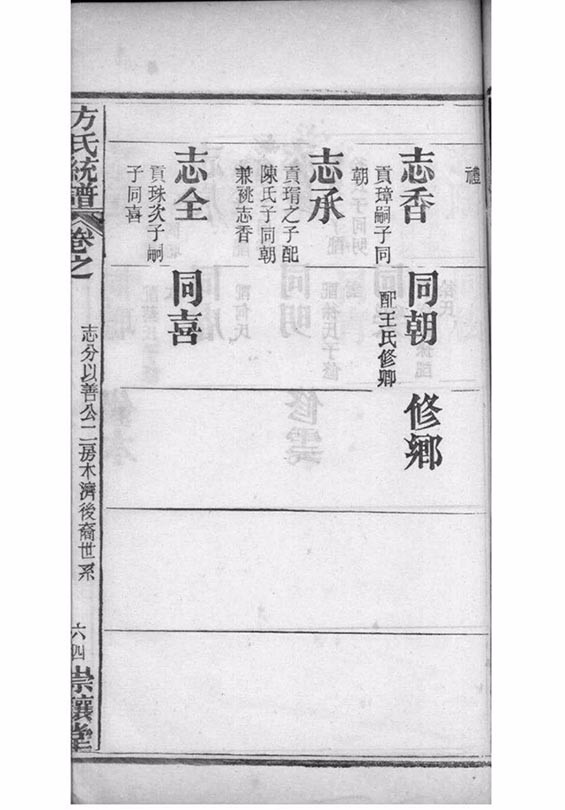 禮
志香
貢璋嗣子同
朝
同朝
配王氏修卿
修鄉
志承
貢瑁之子配
陳氏子同朝
兼祧志香
志全
貢珠次子嗣
子同喜
同喜
方氏統譜
卷之
志分以善公二房木濟後裔世系
六四
崇讓堂